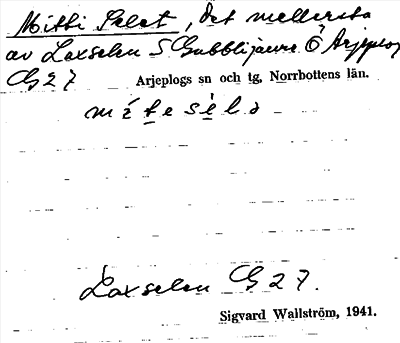 Mitti Selet, det mellersta
av Laxselen S Gubblijaure Ö Arjeplog
G 27 Arjeplogs sn och tg, Norrbottens län.
Laxselen G 27.
Sigvard Wallström, 1941.